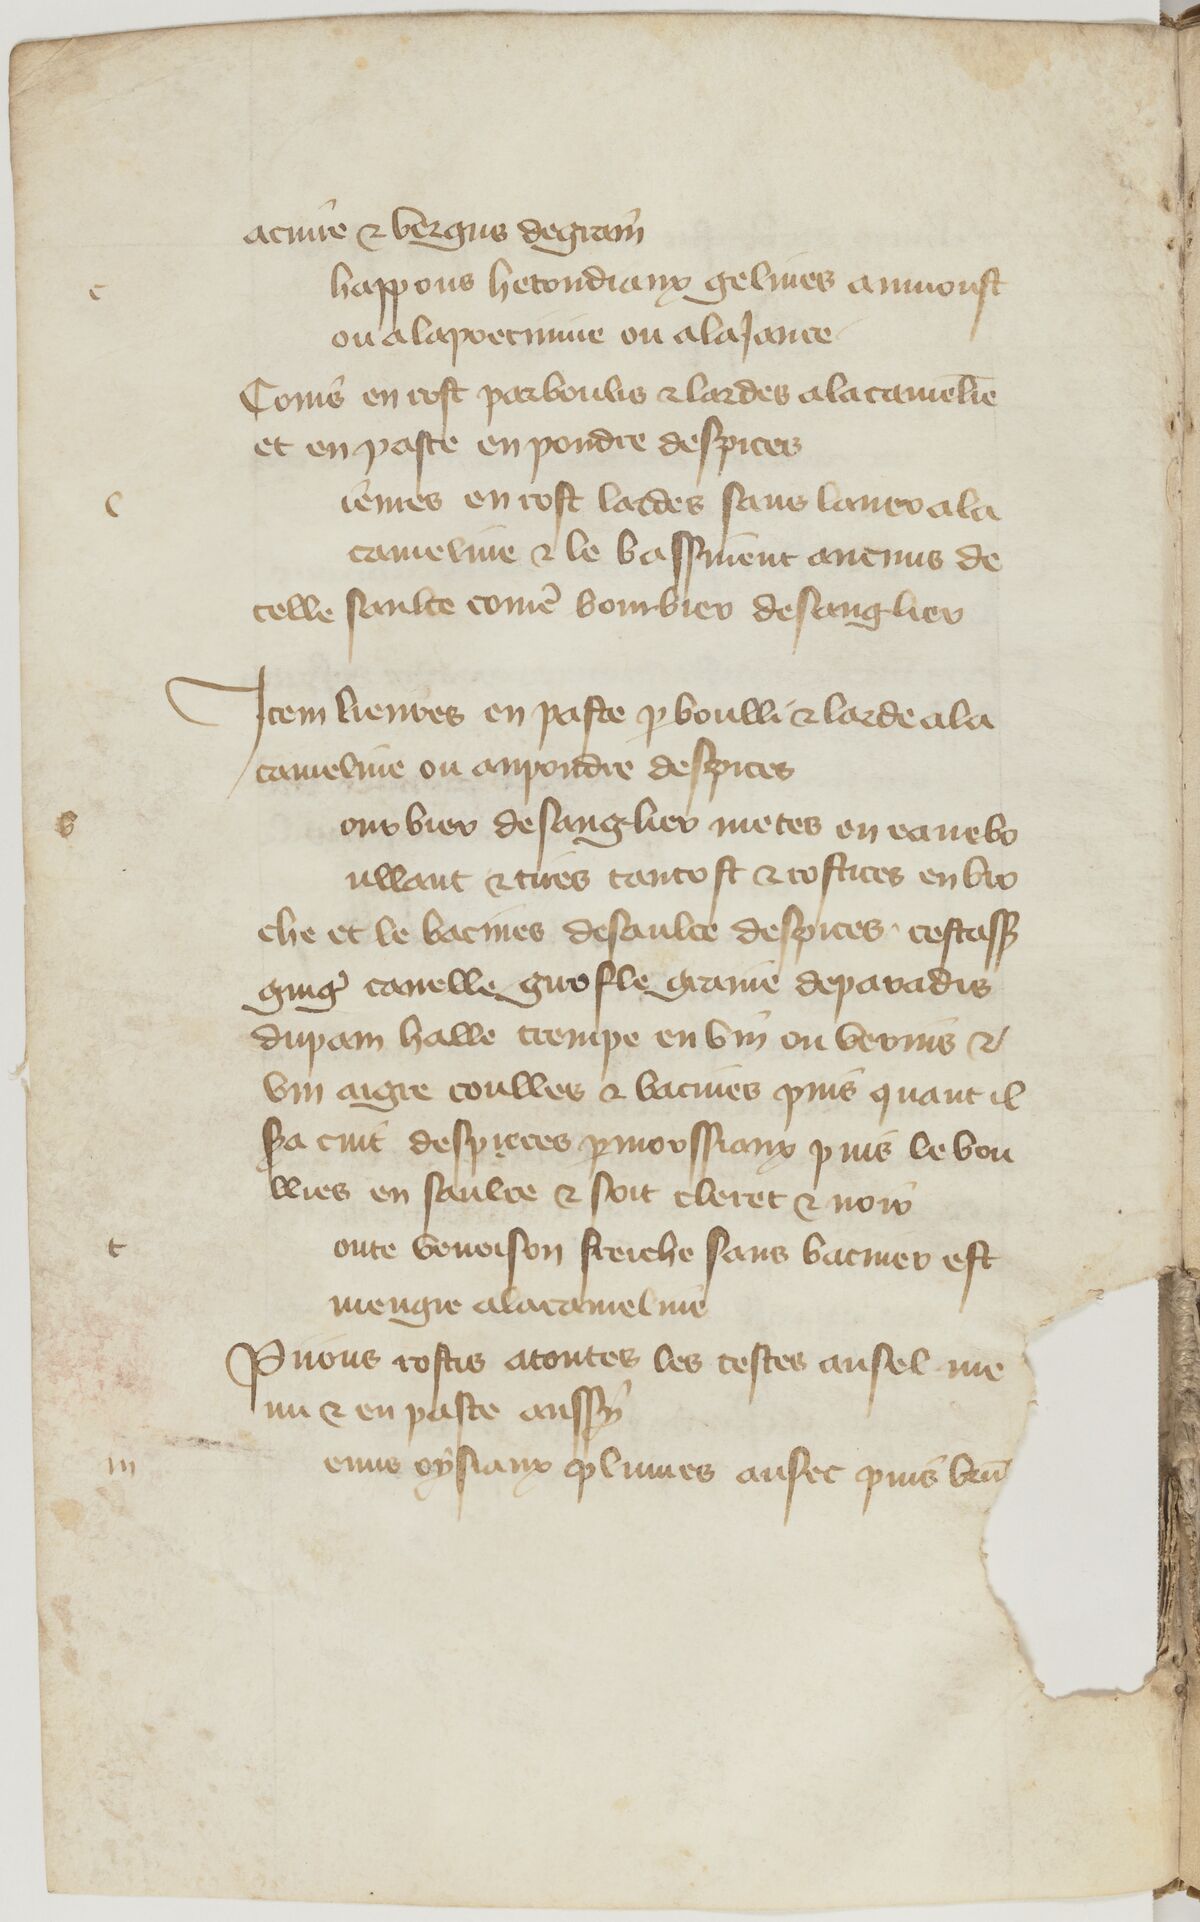 a cuire & vergus de grain
c
happons hetondiaux gelines au moust
ou a la poetmine ou a la Jance
Conis en rost parboulis & lardes a la camelie
et en paste en poudre despices
c
ieures en rost lardes sans laver a la
cameline & le bassinent aucuns de
celle saulce come bourbier de sanglier
Item lieures en paste p boulli & larde a la
cameline ou an poudre despices
b
ourbier de sanglier metes en eaue bo
ullant & tires tantost & rostices en bro
che et le bacines de saulce despices cest ass
ging canelle girofle graine de paradis
du pain halle trempe en vin ou verius &
vin aigre coulles & bacines puis quant il
sa cuit despieces p morssiaux puis le bou
llies en saulce & soit cleret & noir
t
oute venoison freiche sans baciner est
mengie a la cameline
Pijons rostis a toutes les testes au sel me
nu & en paste aussy
m
enus oysiaux plumes a sec puis bru